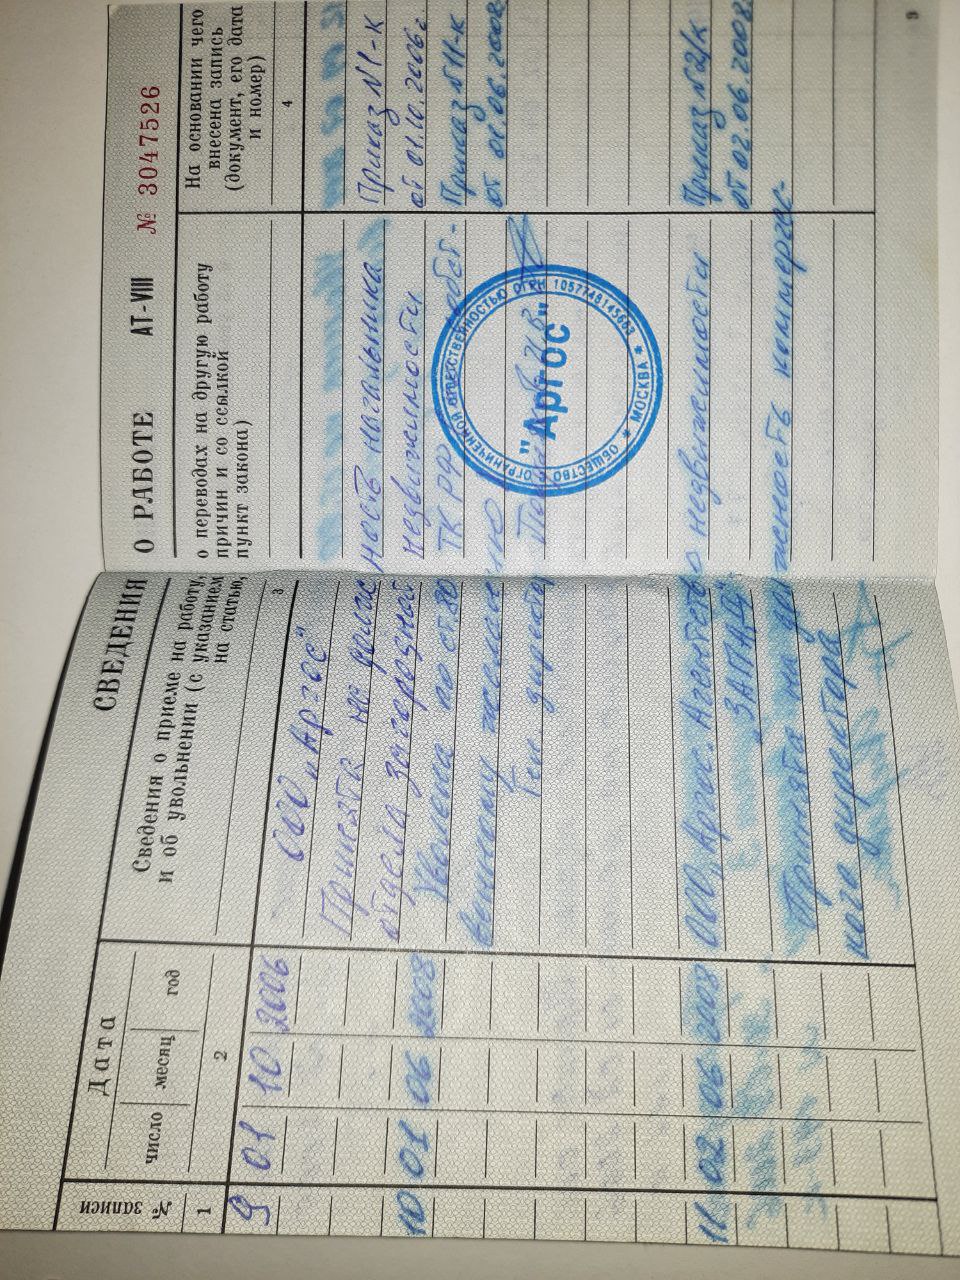 СВЕДЕНИЯ О РАБОТЕ АТ-VIII № 3047526
№ записи
Дата
число месяц год
Сведения о приеме на работу, о переводах на другую работу
и об увольнении (с указанием причин и со ссылкой
на статью, пункт закона)
На основании чего
внесена запись
(документ, его дата
и номер)
1 2 3 4
9 01 10 2006 ООО "Аргос"
Принята на должность начальника Приказ №1-К
отдела загородной недвижимости от 01.10.2006г
10 01 06 2008 Уволена по ст. 80 ТК РФ Приказ №11-К
от 01.06.2008
Ген. директор
11 02 06 2008 ООО "Аргос. Агентство недвижимости Приказ №2/К
"ЗАПАД". от 02.06.2008.
Принята на должность коммерчес-
кого директора
ОБЩЕСТВО С ОГРАНИЧЕННОЙ ОТВЕТСТВЕННОСТЬЮ ОГРН 1057748145663 * МОСКВА *
"АргОС"
9